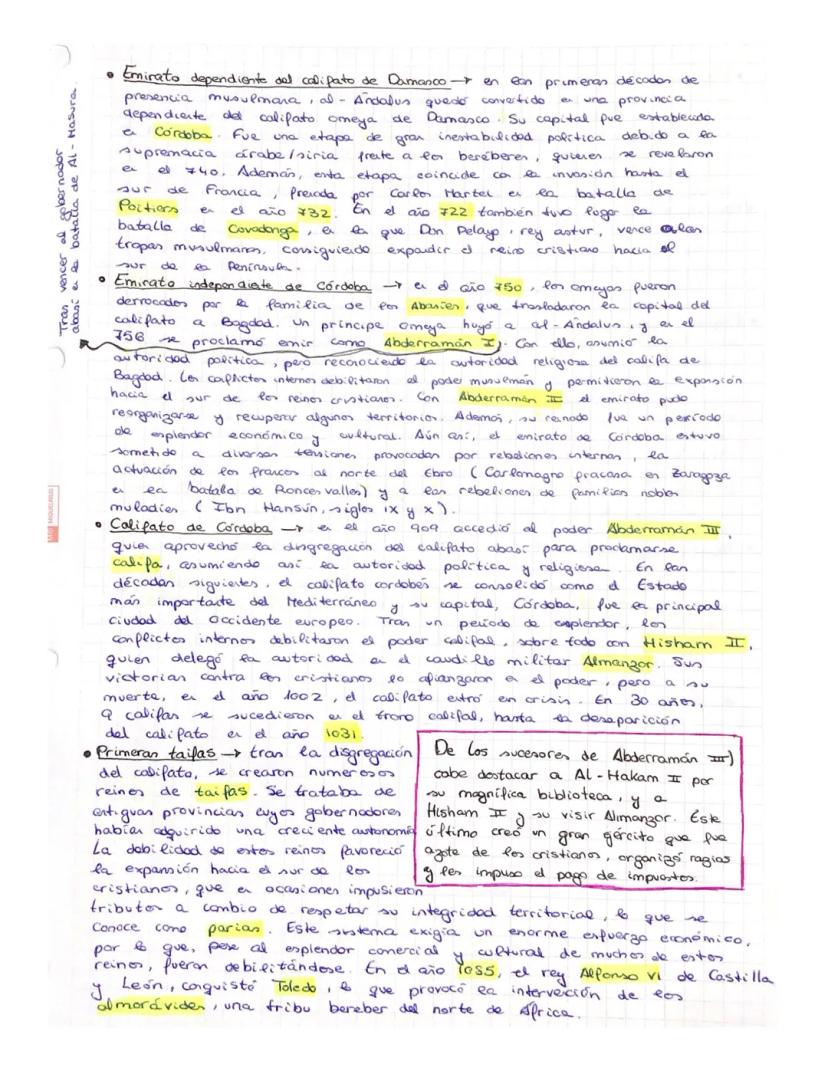 • Emirato dependiente del califato de Damasco → en las primeras décadas de
presencia musulmana, al-Andalus quedó convertido en una provincia
dependiente del califato omeya de Damasco. Su capital fue establecida
en Córdoba. Fue una etapa de gran inestabilidad política debido a la
supremacía árabe/siria frente a los beréberes, quienes se revelaron
en el 740. Además, esta etapa coincide con la invasión hasta el
sur de Francia, frenada por Carlos Martel en la batalla de
Poitiers en el año 732. En el año 722 también tuvo lugar la
batalla de Covadonga, en la que Don Pelayo, rey astur, vence a las
tropas musulmanas, consiguiendo expandir el reino cristiano hacia el
sur de la Península.
• Emirato independiente de Córdoba → en el año 750, los omeyas fueron
derrocados por la familia de los Abasíes, que trasladaron la capital del
califato a Bagdad. Un príncipe omeya huyó a al-Andalus, y en el
756 se proclamó emir como Abderramán I). Con ello, asumió la
autoridad política, pero reconociendo la autoridad religiosa del califa de
Bagdad. Los conflictos internos debilitaron el poder musulmán y permitieron la expansión
hacia el sur de los reinos cristianos. Con Abderramán II el emirato pudo
reorganizarse y recuperar algunos territorios. Además, su reinado fue un período
de esplendor económico y cultural. Aún así, el emirato de Córdoba estuvo
sometido a diversas tensiones provocadas por rebeliones internas, la
actuación de los francos al norte del Ebro (Carlomagno fracasa en Zaragoza
en la batalla de Roncesvalles) y a las rebeliones de familias nobles
muladíes (Ibn Hansún, siglos IX y X).
• Califato de Córdoba → en el año 909 accedió al poder Abderramán III,
quien aprovechó la disgregación del califato abasí para proclamarse
califa, asumiendo así la autoridad política y religiosa. En las
décadas siguientes, el califato cordobés se consolidó como el Estado
más importante del Mediterráneo y su capital, Córdoba, fue la principal
ciudad del occidente europeo. Tras un período de esplendor, los
conflictos internos debilitaron el poder califal, sobre todo con Hisham II,
quien delegó la autoridad en el caudillo militar Almanzor. Sus
victorias contra los cristianos lo afianzaron en el poder, pero a su
muerte, en el año 1002, el califato entró en crisis. En 30 años,
9 califas se sucedieron en el trono califal, hasta la desaparición
del califato en el año 1031.
• Primeras taifas → tras la disgregación
del califato, se crearon numerosos
reinos de taifas. Se trataba de
antiguas provincias cuyos gobernadores
habían adquirido una creciente autonomía
La debilidad de estos reinos favoreció
la expansión hacia el sur de los
cristianos, que en ocasiones impusieron
tributos a cambio de respetar su integridad territorial, lo que se
conoce como parias. Este sistema exigía un enorme esfuerzo económico,
por lo que, pese al esplendor comercial y cultural de muchos de estos
reinos, fueron debilitándose. En el año 1085, el rey Alfonso VI de Castilla
y León, conquistó Toledo, lo que provocó la intervención de los
almorávides, una tribu bereber del norte de África.
De los sucesores de Abderramán III)
cabe destacar a Al-Hakam II por
su magnífica biblioteca, y a
Hisham II y su visir Almanzor. Este
último creó un gran ejército que fue
azote de los cristianos, organizó razias
y les impuso el pago de impuestos.
Tras vencer al gobernador
abasí en la batalla de Al-Masura.
MIQUELRIUS